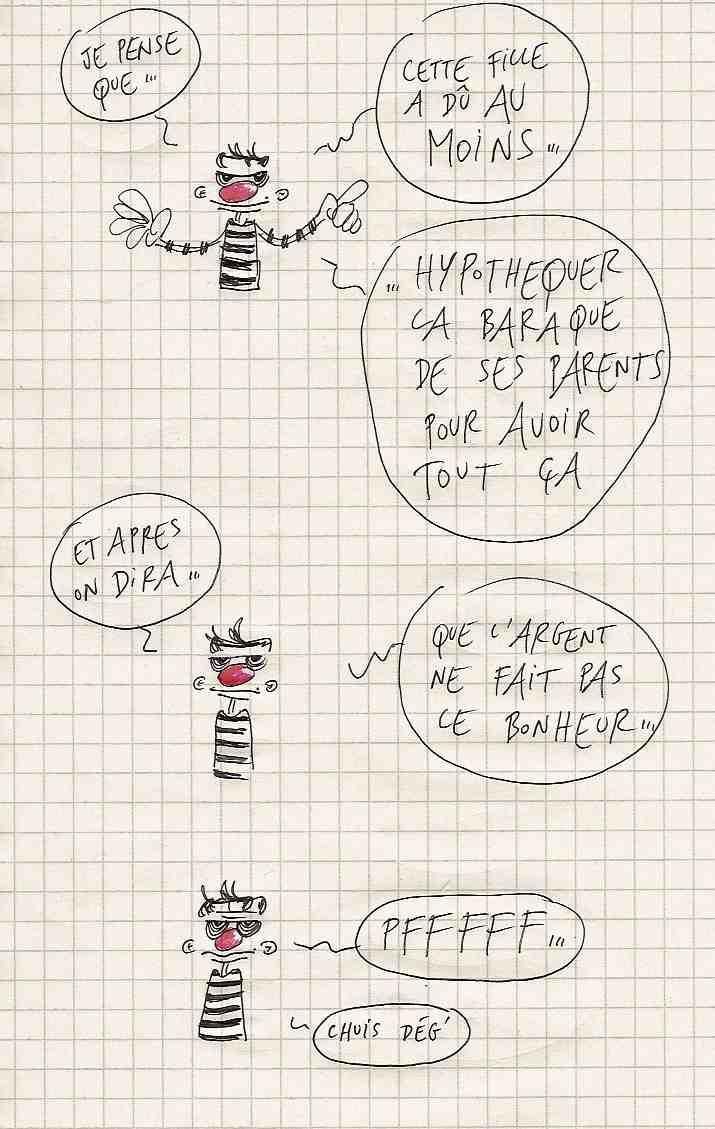 JE PENSE
QUE...
CETTE FILLE
A DÛ AU
MOINS...
...HYPOTHEQUER
LA BARAQUE
DE SES PARENTS
POUR AVOIR
TOUT ÇA
ET APRES
ON DIRA...
QUE L'ARGENT
NE FAIT PAS
LE BONHEUR...
PFFFFFF...
CHUIS DÉG'